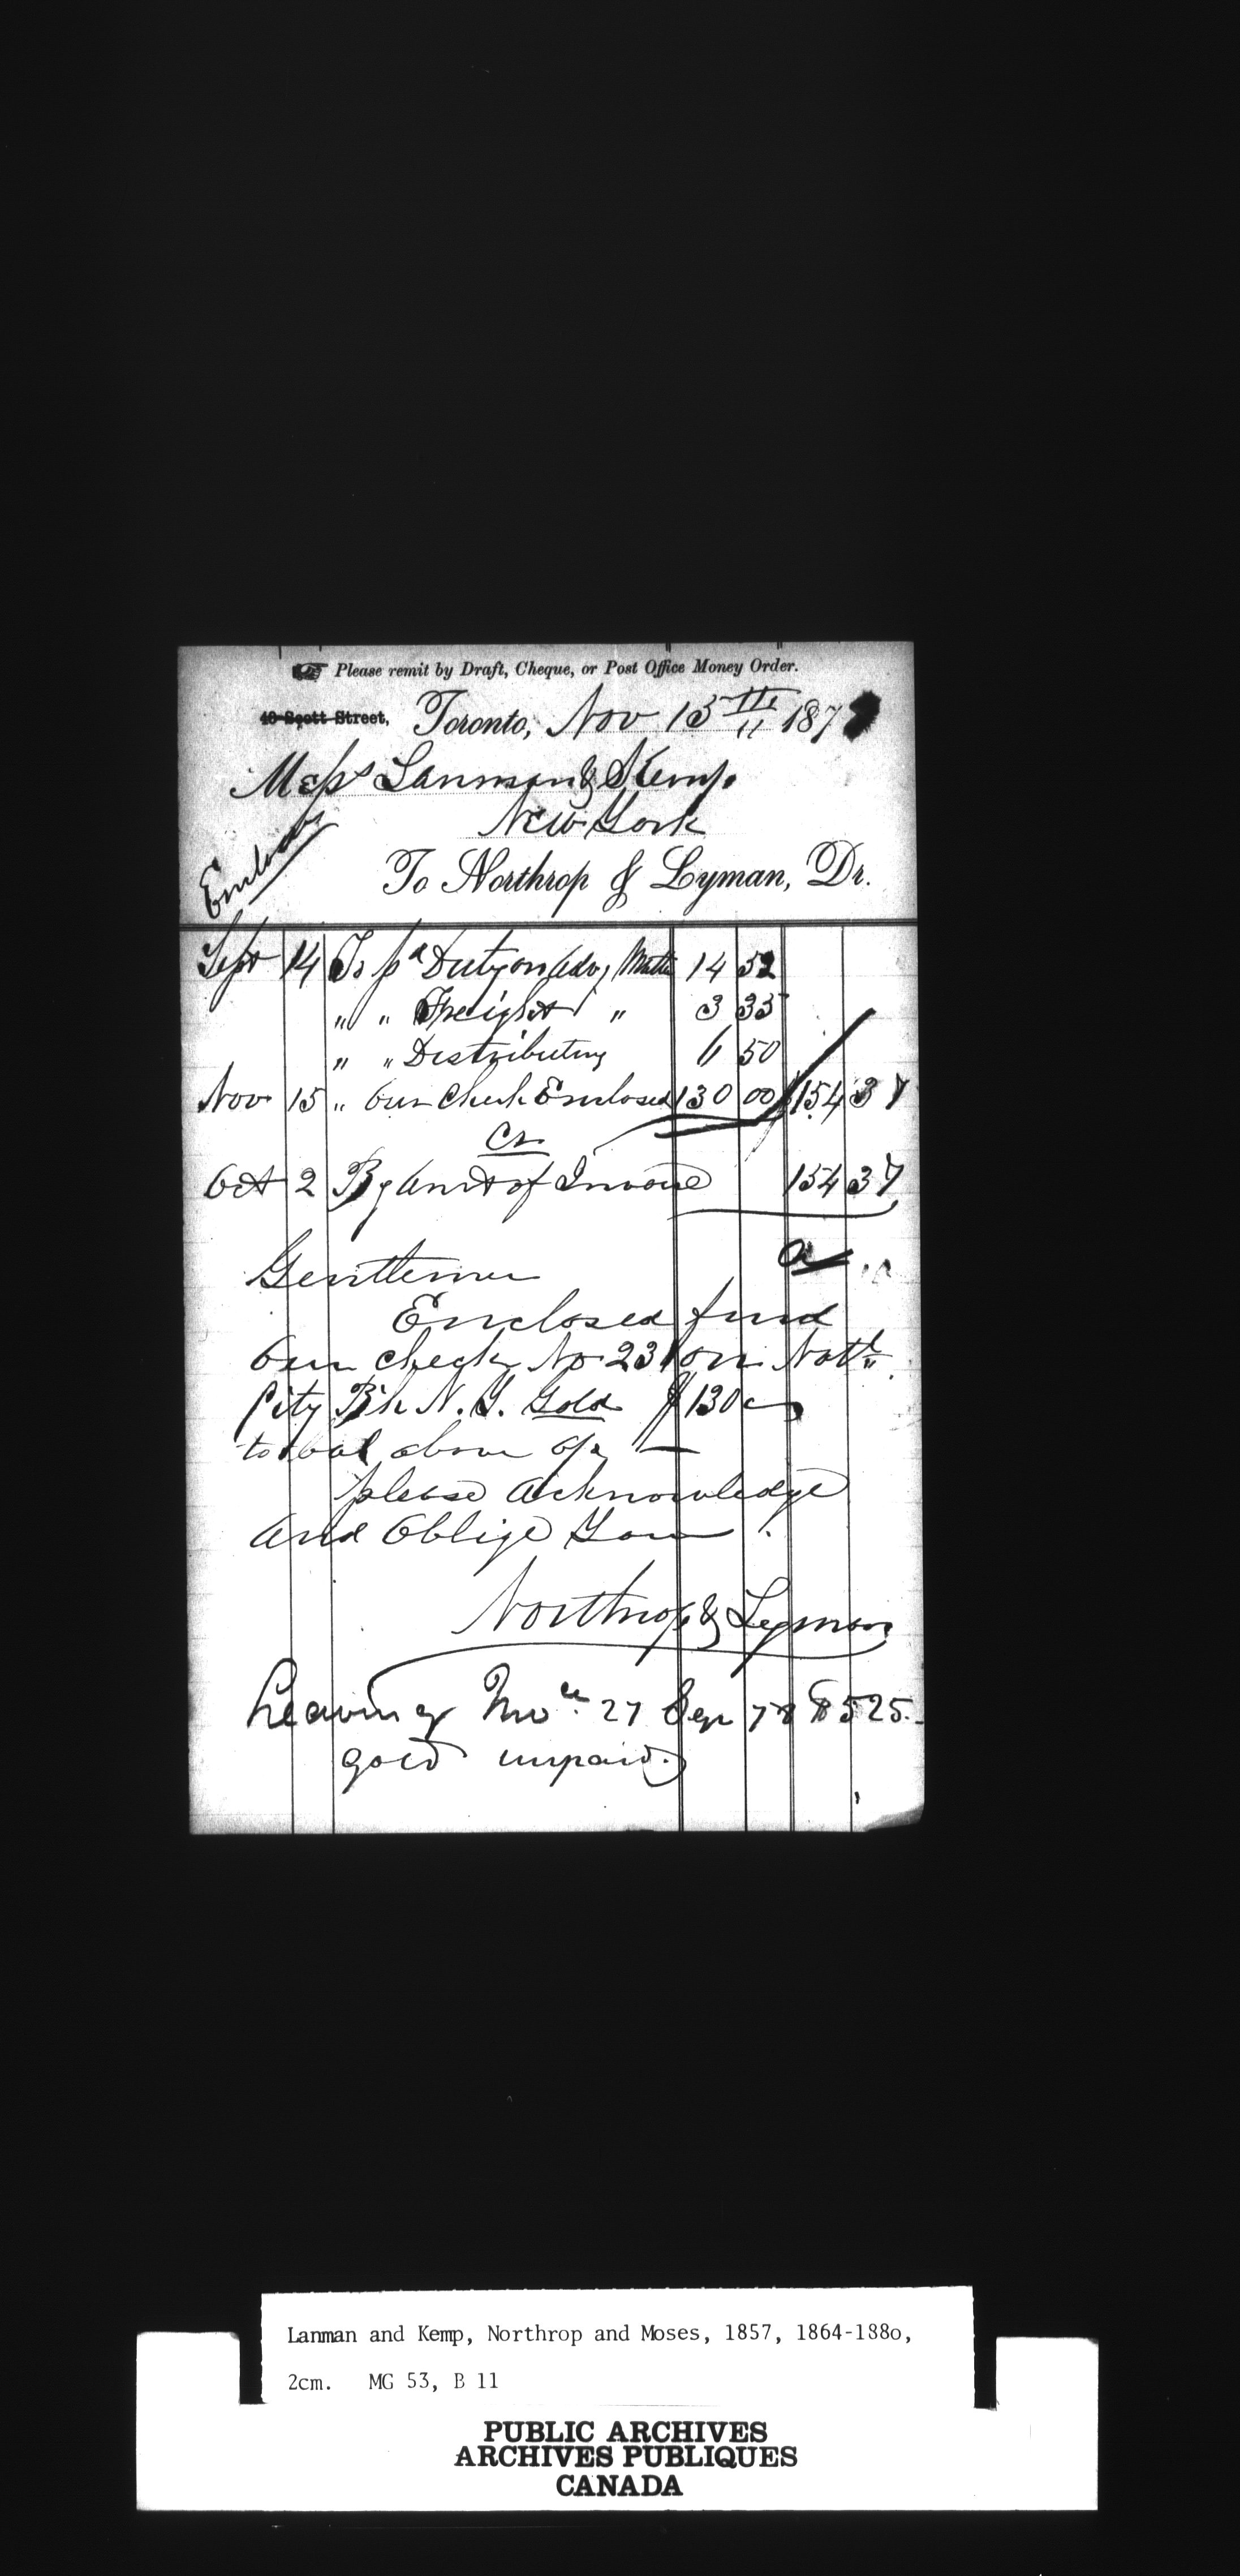 Please remit by Draft, Cheque, or Post Office Money Order.
40 Scott Street, Toronto, Nov 15th 187
Mess Lanman & Kemp
New York
Enclosed
To Northrop & Lyman, Dr.
Sept 14 To pd Duty on Adv, Matter 14 52
" " Freight " 3 35
" " Distributing 6 50
Nov 15 " Our Check Enclosed 130 00 154 37
Cr
Oct 2 By Amt of Invoice 154 37
Gentlemen
Enclosed find
Our check No 231 on Natl
City Bk N. Y. Gold $130
to bal above a/c
please acknowledge
And Oblige Yours
Northrop & Lyman
Leaving Invce. 27 Sep 78 $525.
gold unpaid.
Lanman and Kemp, Northrop and Moses, 1857, 1864-188o,
2cm. MG 53, B 11
PUBLIC ARCHIVES
ARCHIVES PUBLIQUES
CANADA